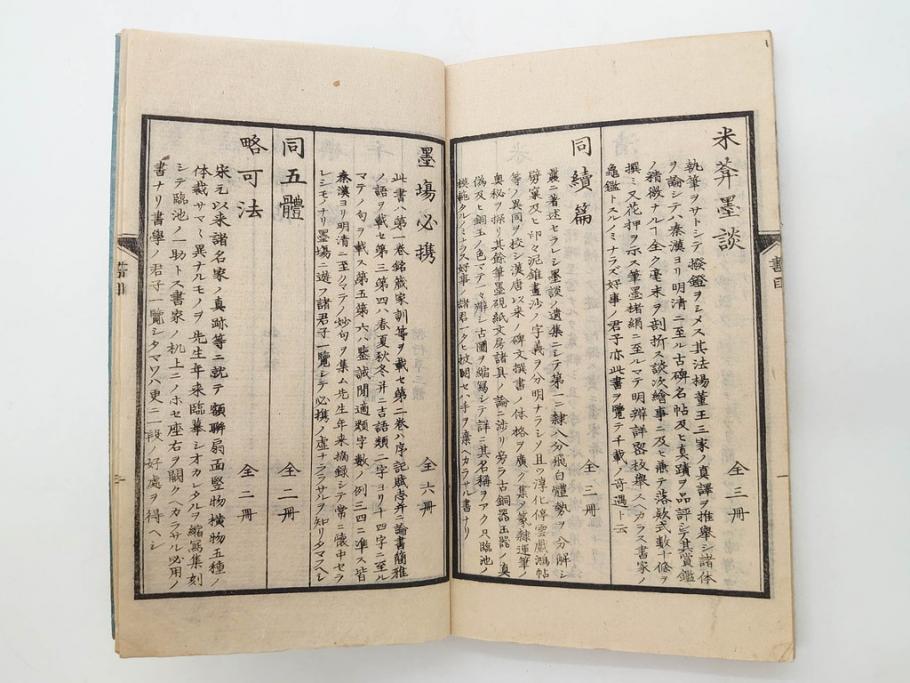 米葊墨談
全三冊
執筆ヲサトシテ撥鐙ヲシメス其法楊董王三家ノ真譯ヲ推舉シ諸体
ヲ論シテハ秦漢ヨリ明清ニ至ル古碑名帖及ヒ真蹟ヲ品評シテ其賞鑑
ノ精微ナル丁全ク毫末ヲ剖折ス談次繪事ニ及ヒ兼テ落款式數十條ヲ
撰ミ又花押ヲ示ス筆墨楮絹ニ至ルマテ明辨詳密枚舉スヘカラス書家ノ
龜鑑トスルノミナラズ好事ノ君子亦此書ヲ覽テ千載ノ奇遇ト云
同續篇
全三冊
曩ニ著述セラレシ墨談ノ遺集ニシテ第一ニ隷八分飛白體勢ヲ分解シ
劈窠及ヒ印々泥錐畫沙ノ字義ヲ分明ナラシメ且ツ淳化停雲戲鴻帖
等ノ異同ヲ校シ漢唐以来ノ碑文撰書ノ体格ヲ廣ク集メ篆隷運筆ノ
奥秘ヲ探リ其餘筆墨硯紙文房諸具ノ論ニ渉リ旁ラ古銅器玉器ノ真
偽及ヒ銅玉ノ色マテ一々辨シ古圖ヲ縮寫シテ詳ニ其名稱ヲアク只臨池ノ
模範タルノミナラス好事ノ諸君一タヒ披閲セハ手ヲ棄ヘカラサル書ナリ
墨場必携
全六冊
此書ハ第一卷銘箴家訓等ヲ載セ第二卷ハ序記賦志并ニ論書簡雅
ノ語ヲ載セ第三第四ハ春夏秋冬并ニ吉語類二字ヨリ十四字ニ至ル
マテノ句ヲ載ス第五第六ハ鑒誡閒適類字數ノ例三四ニ準ス皆
秦漢ヨリ明清ニ至ルマテノ妙句ヲ集ム先生年来摘録シテ常ニ懷中セラ
レシモノナリ墨場ニ遊フ諸君子一覽シテ必携ノ虚ナラサルヲ知リタマヘシ
同五體
全二冊
略可法
全二冊
宋元以来諸名家ノ真跡等ニ就テ額聯扇面竪物横物五種ノ
体裁サマ〱異ナルモノヲ先生年来臨摹シオカレタルヲ縮寫集刻
シテ臨池ノ一助トス書家ノ机上ニノホセ座右ヲ闕クヘカラサル必用ノ
書ナリ書學ノ君子一覽シタマワハ更ニ一段ノ好處ヲ得ヘシ
書目